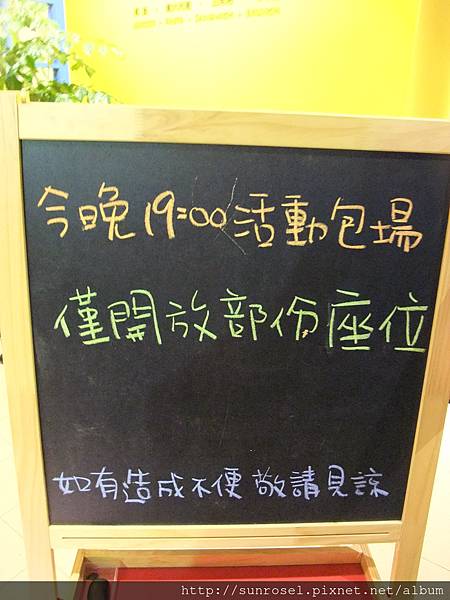 今晚19:00活動包場
僅開放部份座位
如有造成不便 敬請見諒
http://sunrosel.pixnet.net/album